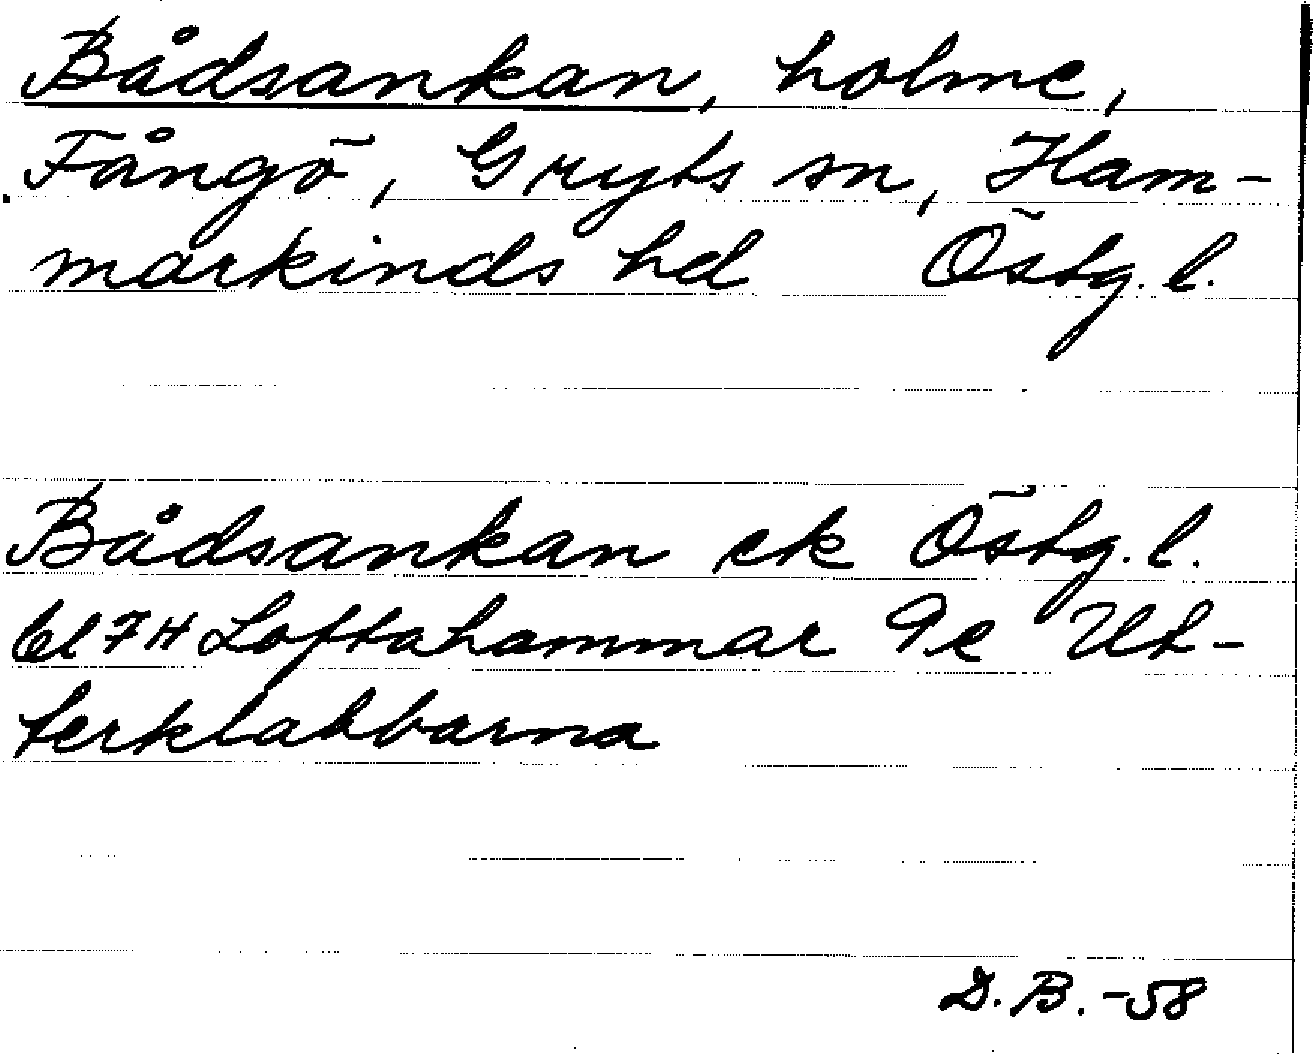 Bådsankan, holme,
Fångö, Gryts sn, Ham-
markinds hd Östg. l.
Bådsankan ek Östg. l.
bl 7H Loftahammar 9e Ut-
terklabbarna
D. B. -58